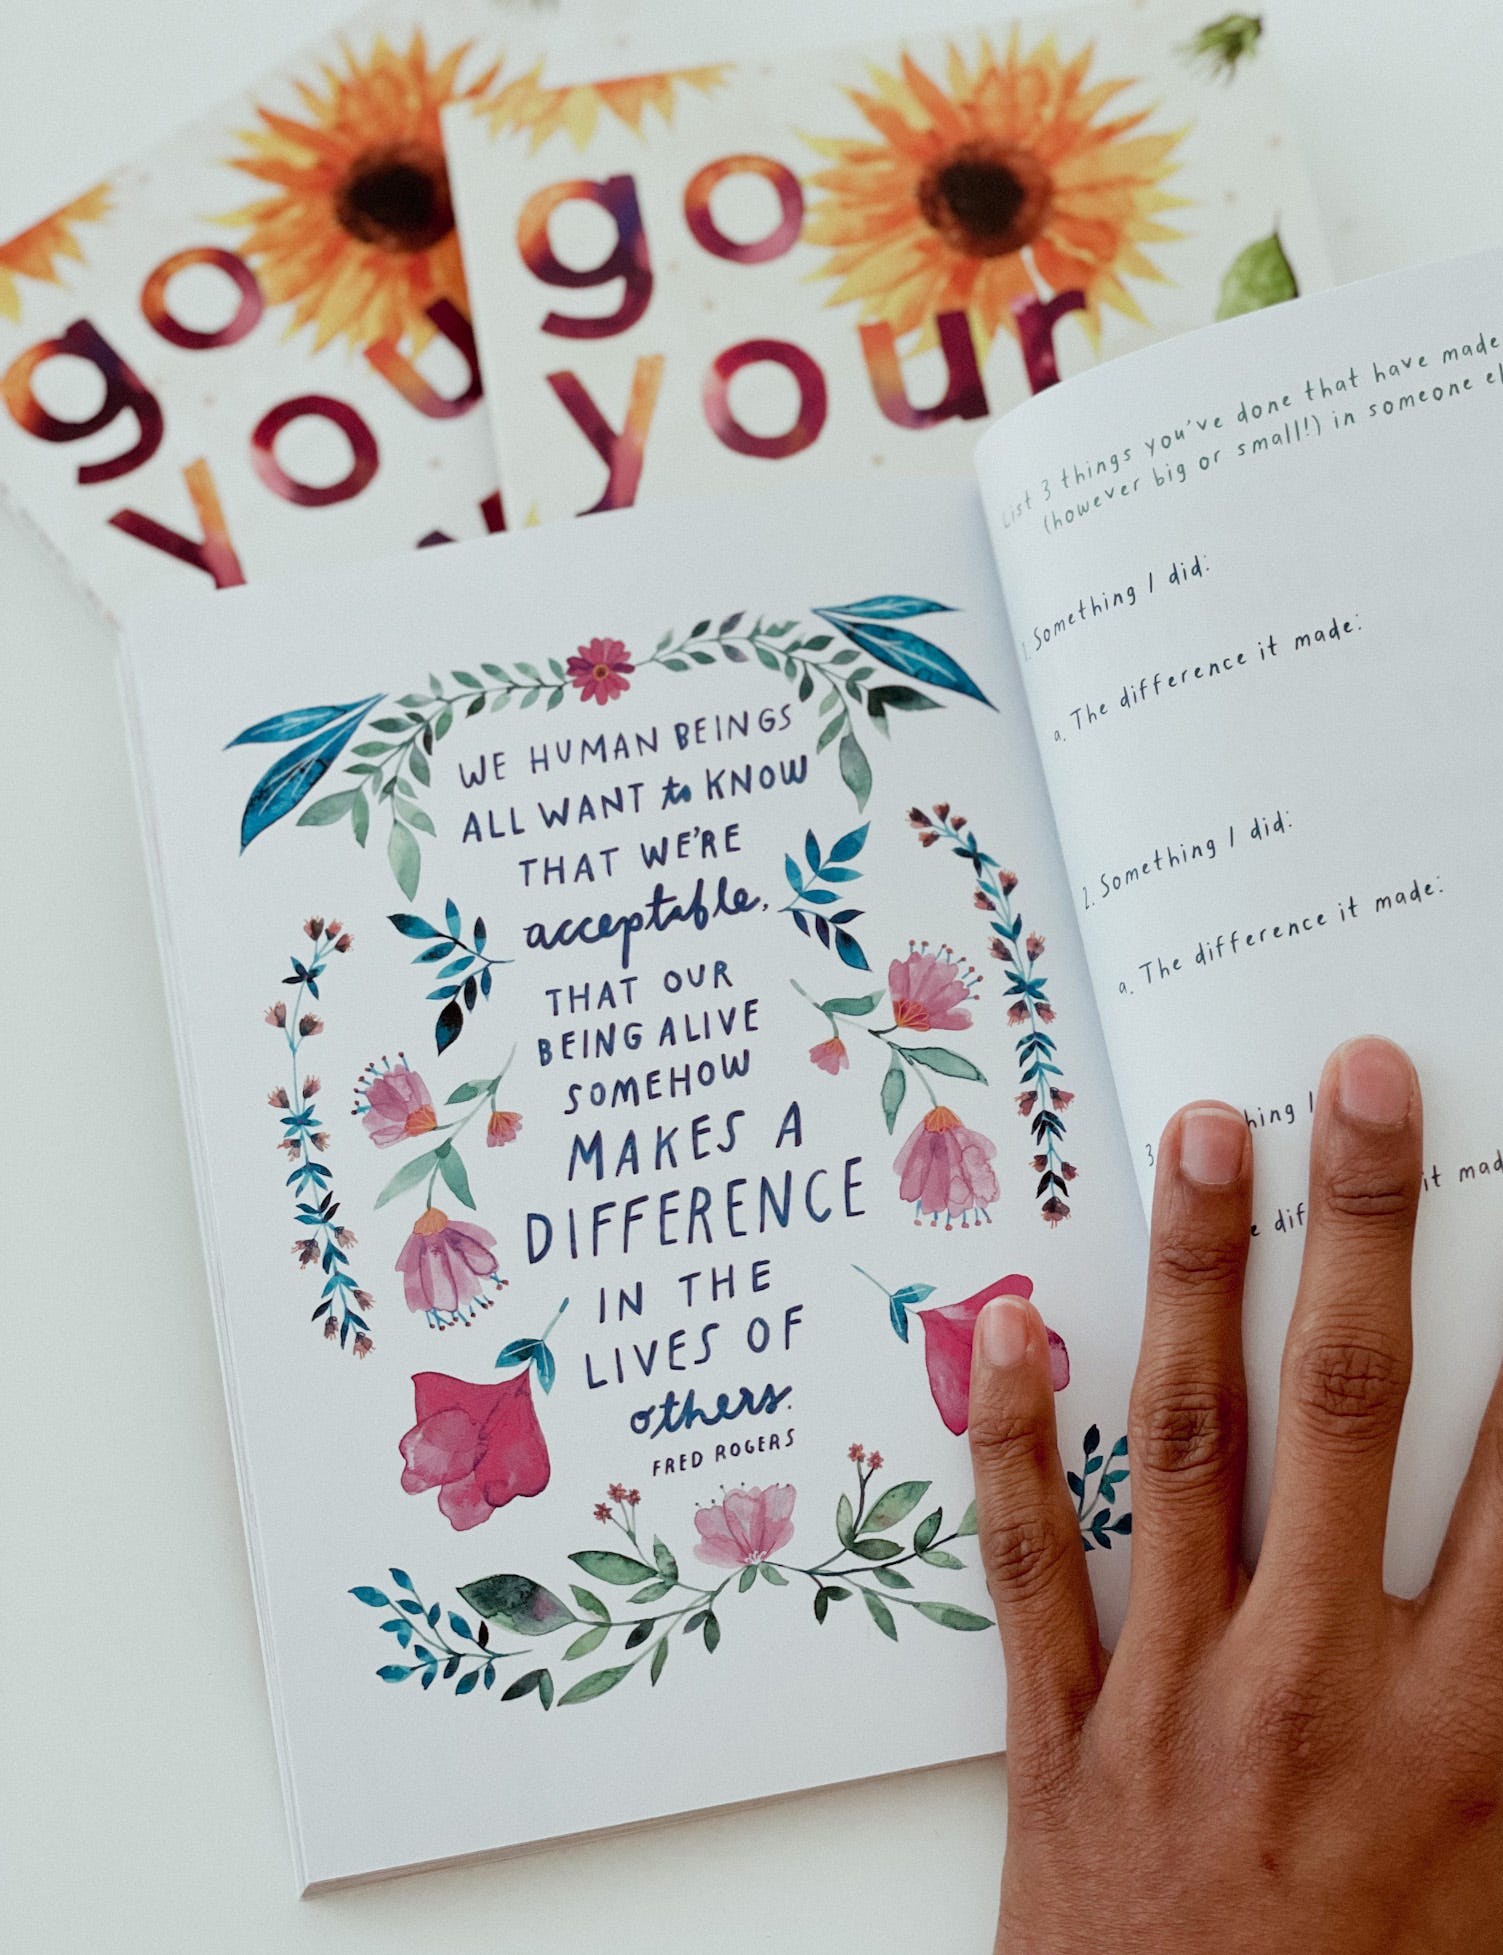 go
your
go
your
WE HUMAN BEINGS
ALL WANT to KNOW
THAT WE'RE
acceptable,
THAT OUR
BEING ALIVE
SOMEHOW
MAKES A
DIFFERENCE
IN THE
LIVES OF
others.
FRED ROGERS
List 3 things you've done that have made
(however big or small!) in someone el
1. Something I did:
a. The difference it made:
2. Something I did:
a. The difference it made:
3 hing I
e dif it mad